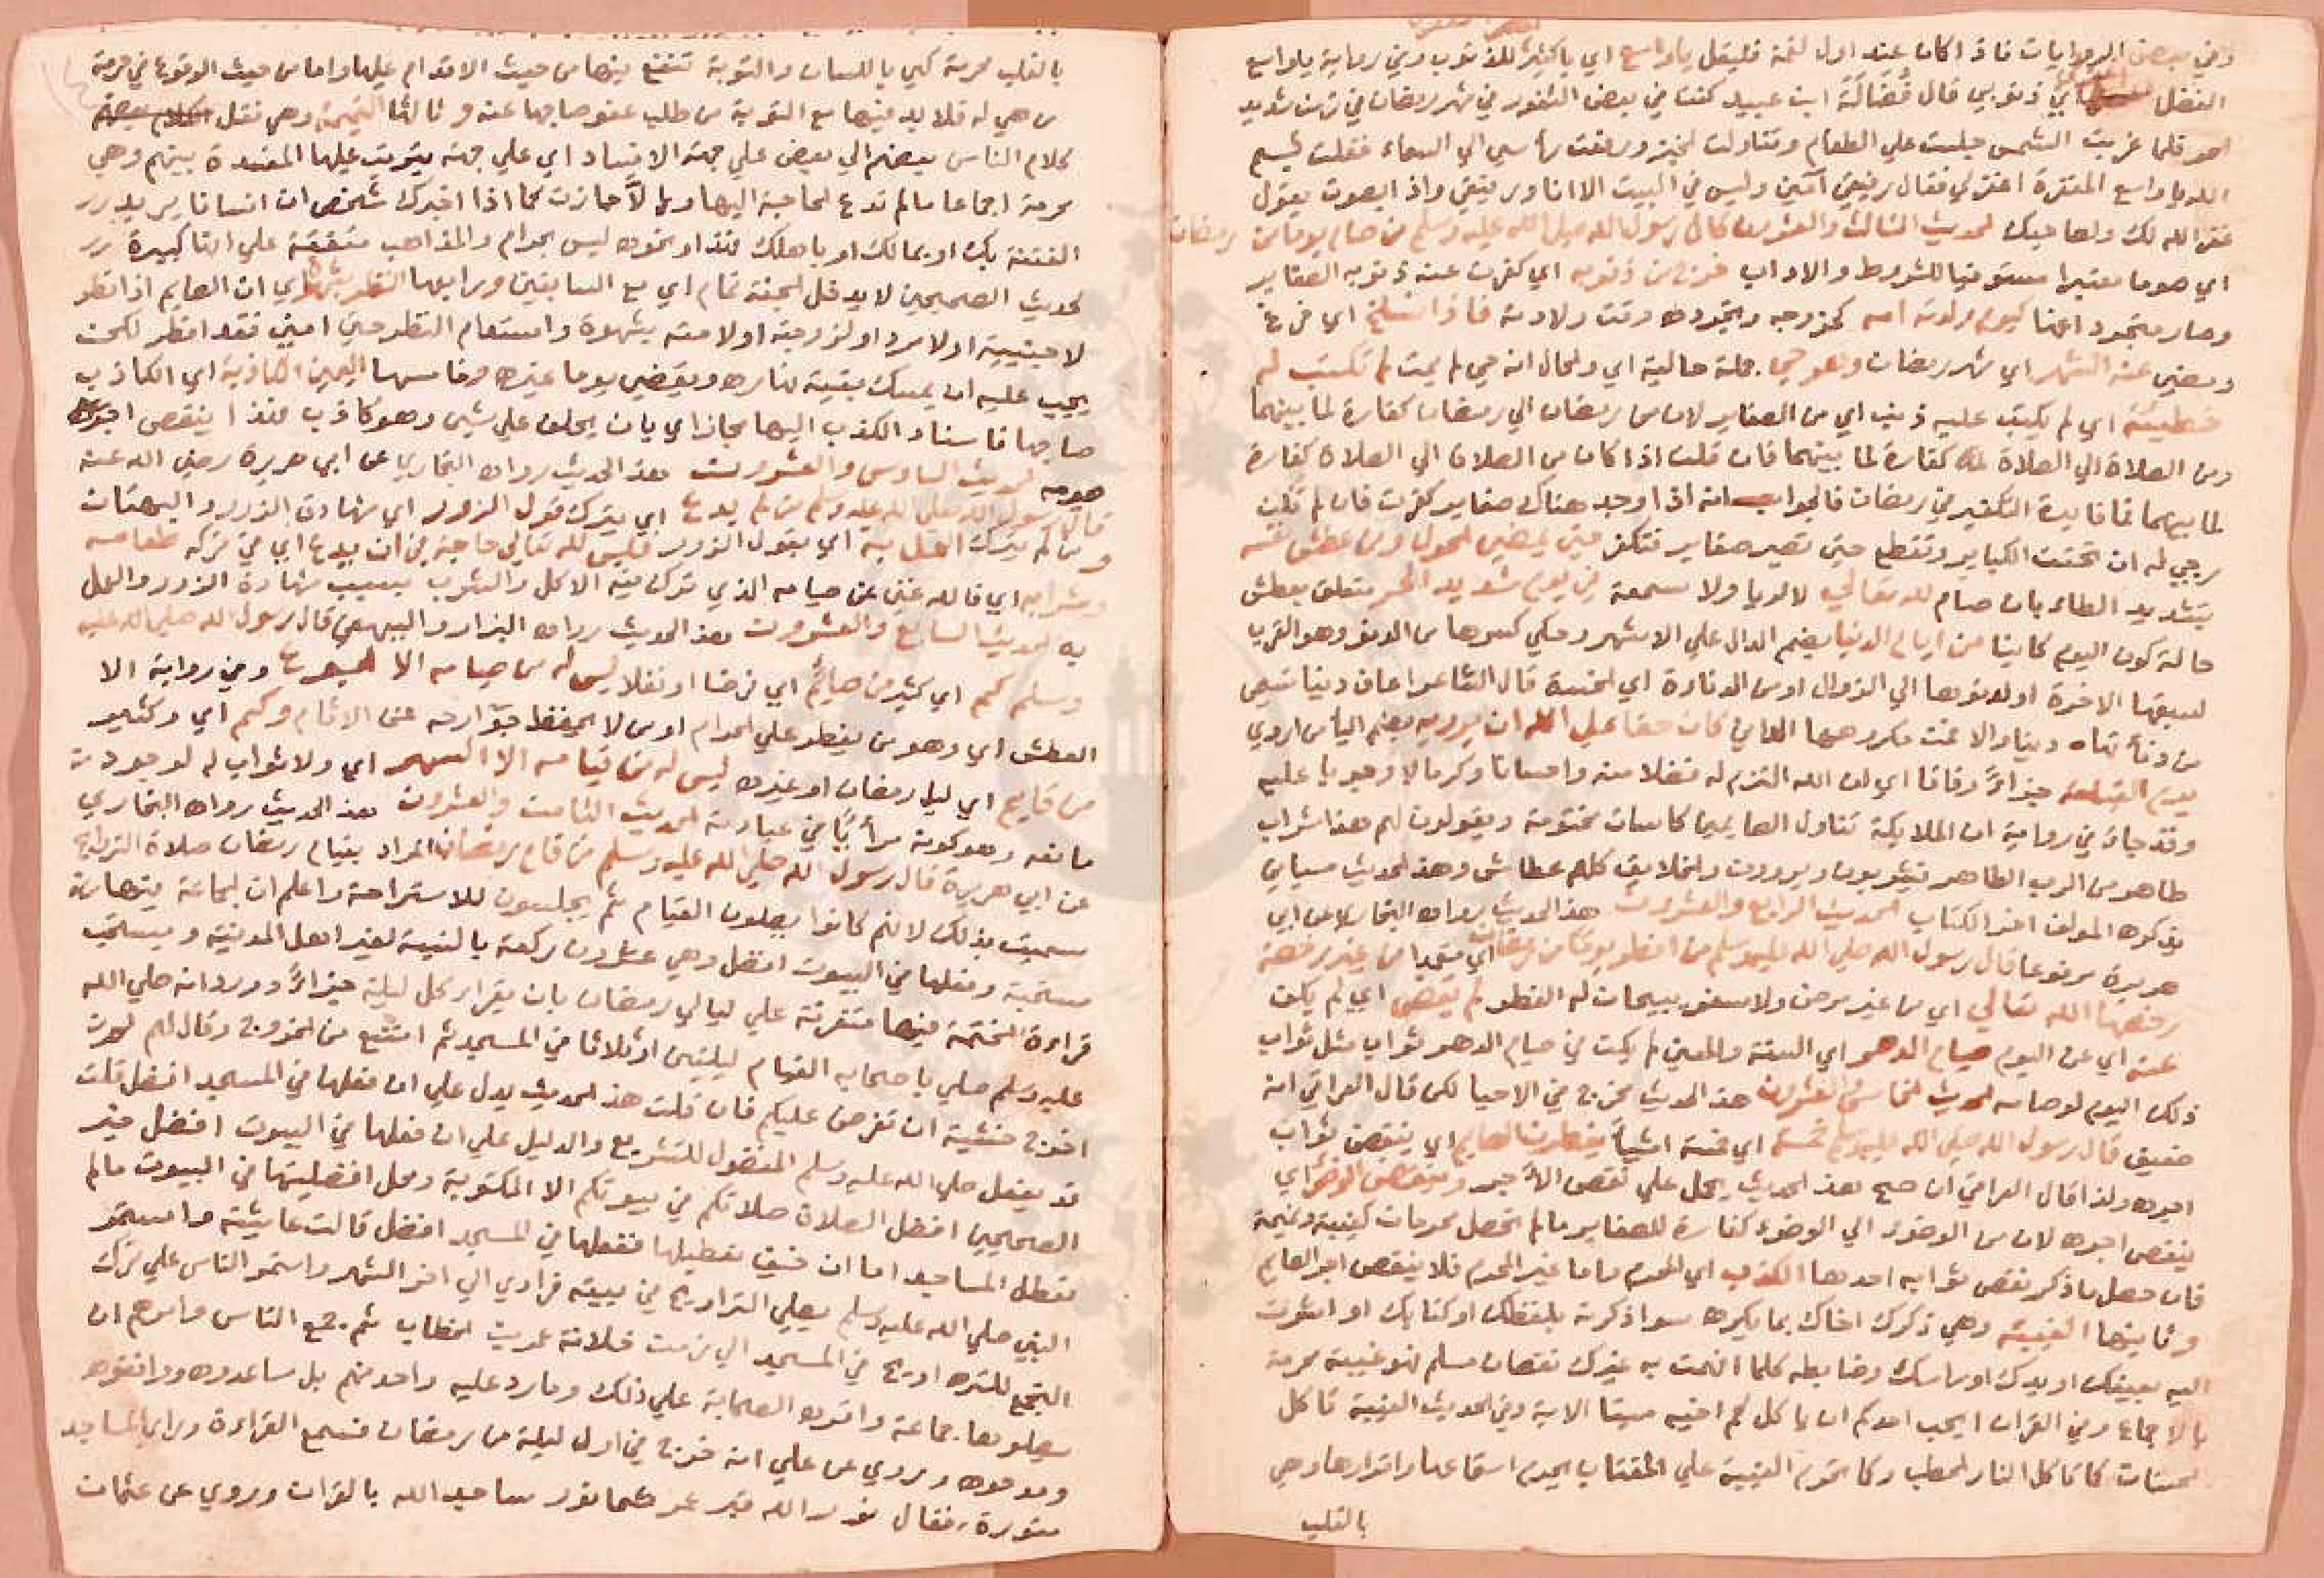 وفي بعض الروايات فاذا كان عند اول لقمة فليقل يا واسع اي يا كثير للذنوب وفي رواية يا واسع
الفضل اي ذنوبي قال فضالة ابن عبيد كنت في بعض الثغور في شهر رمضان في زمن شديد
الحر فلما غربت الشمس جلست علي الطعام وتناولت الخبز ورفعت رأسي الي السماء فقلت بسم
الله يا واسع المغفرة اغفر لي فقال رفيقي آمين وليس في البيت الا انا ورفيقي واذا بصوت يقول
غفر الله لك ولصاحبك الحديث الثالث والعشرون قال رسول الله صلي الله عليه وسلم من صام يوما من رمضان
اي صوما معتبرا مستوفيا للشروط والاداب خرج من ذنوبه اي كفرت عنه ذنوبه الصغاير
وصار متجردا عنها كيوم ولدته امه كخروجه وتجرده وقت ولادته فاذا انسلخ اي فرغ
ومضي عنه الشهر اي شهر رمضان وهو حي جملة حالية اي والحال انه حي لم يمت لم تكتب له
خطيئة اي لم يكتب عليه ذنب اي من الصغاير لان من رمضان الي رمضان كفارة لما بينهما
ومن الصلاة الي الصلاة كفارة لما بينهما فان قلت اذا كان من الصلاة الي الصلاة كفارة
لما بينهما فما فايدة التكفير في رمضان فالجواب انه اذا وجد هناك صغاير كفرت فان لم تكن
رجي له ان تحتت الكباير وتقطع حتي تصير صغاير فتكفر حتي يمضي الحول ومن عطش نفسه
بتشديد الطاء بان صام لله تعالي لا لريا ولا سمعة في يوم شديد الحر متعلق بعطش
حالة كون اليوم كاينا من ايام الدنيا بضم الدال علي الاشهر وحكي كسرها من الدنو وهو القرب
لسبقها الاخرة او لدنوها الي الزوال او من الدناءة اي الخسة قال الشاعر اعاف دنيا تسمي
من دنأتها دنيا والا فمن مكروهها الداني كان حقا علي الله ان يرويه بضم اليا من اروي
يوم القيامة جزاءً وفاقا اي ان الله التزم له تفضلا منه واحسانا وكرما لا وجوبا عليه
وقد جاء في رواية ان الملايكة تناول الصايمين كاسات مختومة ويقولون لهم هذا شراب
طاهر من الرب الطاهر فيشربون ويروون والخلايق كلهم عطاش وهذا الحديث سياتي
يذكره المولف اخر الكتاب الحديث الرابع والعشرون هذا الحديث رواه البخاري عن ابي
هريرة مرفوعا قال رسول الله صلي الله عليه وسلم من افطر يوما من رمضان اي متعمدا من غير رخصة
رخصها الله تعالي اي من غير مرض ولا سفر يبيحان له الفطر لم يقضي اي لم يكف
عنه اي عن اليوم صيام الدهر اي السنة والمعني لم يكن في صيام الدهر ثواب مثل ثواب
ذلك اليوم لو صامه الحديث الخامس والعشرون هذا الحديث مخرج في الاحيا لكن قال العراقي انه
ضعيف قال رسول الله صلي الله عليه وسلم خمسة اي خمسة اشياً يفطرن الصايم اي ينقصن ثواب
اجره ولذا قال العراقي ان صح هذا الحديث يحمل علي نقص الأجر وينقضن الوضوء اي
ينقص اجره لان من الوضوء الي الوضوء كفارة للصغاير ما لم تحصل محرمات كغيبة ونميمة
فان حصل ما ذكر نقص ثوابه احدها الكذب اي المحرم واما غير المحرم فلا ينقص اجر الصايم
وثانيها الغيبة وهي ذكرك اخاك بما يكره سوا ذكرته بلفظك او كتابك او اشرت
اليه بعينك او يدك او راسك وضابطه كلما افهمت به غيرك نقصان مسلم فهو غيبة محرمة
بالاجماع وفي القران ايحب احدكم ان ياكل لحم اخيه ميتا الاية وفي الحديث الغيبة تاكل
الحسنات كما تاكل النار الحطب وكما تحرم الغيبة علي المغتاب يحرم استماعها واقرارها وهي
بالقلب
بالقلب محرمة كهي باللسان والتوبة تنفع فيها من حيث الاقدام عليها واما من حيث الوقوع في حرمة
من هي له فلا بد فيها مع التوبة من طلب عفو صاحبها عنه وثالثها النميمة وهي نقل
كلام الناس بعضهم الي بعض علي جهة الافساد اي علي جهة يترتب عليها المفسدة بينهم وهي
محرمة اجماعا ما لم تدع الحاجة اليها والا جازت كما اذا اخبرك شخص ان انسانا يريد
الفتنة بك او بمالك او باهلك فهذا ونحوه ليس بحرام والمذاهب متفقة علي انها كبيرة
لحديث الصحيحين لا يدخل الجنة نمام اي مع السابقين ورابعها النظر بشهوة اي ان الصايم اذا نظر
لاجنبية او لامرد او لزوجته او لامته بشهوة واستدام النظر حتي امني فقد افطر لكن
يجب عليه ان يمسك بقية نهاره ويقضي يوما غيره وخامسها اليمين الكاذبة اي الكاذب
صاحبها فاسناد الكذب اليها مجاز اي بان يحلف علي شيء وهو كاذب فهذا ينقص اجر
صومه الحديث السادس والعشرون هذا الحديث رواه البخاري عن ابي هريرة رضي الله عنه
قال رسول الله صلي الله عليه وسلم من لم يدع اي يترك قول الزور اي شهادة الزور والبهتان
ومن لم يترك العمل به اي بقول الزور فليس لله تعالي حاجة في ان يدع اي في تركه طعامه
وشرابه اي فالله غني عن صيامه الذي ترك فيه الاكل والشرب بسبب شهادة الزور والعمل
به الحديث السابع والعشرون هذا الحديث رواه البزار والبيهقي قال رسول الله صلي الله عليه
وسلم كم اي كثير من صائم اي فرضا او نفلا ليس له من صيامه الا الجوع وفي رواية الا
العطش اي وهو من يفطر علي الحرام او من لا يحفظ جوارحه عن الاثام وكم اي وكثير
من قايم اي ليل رمضان او غيره ليس له من قيامه الا السهر اي ولا ثواب له لوجود
مانعه وهو كونه مرأئيا في عبادته الحديث الثامن والعشرون هذا الحديث رواه البخاري
عن ابي هريرة قال رسول الله صلي الله عليه وسلم من قام رمضان المراد بقيام رمضان صلاة التراويح
سميت بذلك لانهم كانوا يصلون القيام ثم يجلسون للاستراحة واعلم ان الجماعة فيها سنة
مستحبة وفعلها في البيوت افضل وهي عشرون ركعة بالنسبة لغير اهل المدينة ويستحب
قراءة الختمة فيها متفرقة علي ليالي رمضان بان يقراء كل ليلة جزاءً وورد انه صلي الله
عليه وسلم صلي باصحابه القيام ليلتين او ثلاثا في المسجد ثم امتنع من الخروج وقال لهم لم
اخرج خشية ان تفرض عليكم فان قلت هذا الحديث يدل علي ان فعلها في المسجد افضل قلت
قد يفعل صلي الله عليه وسلم المفضول للتشريع والدليل علي ان فعلها في البيوت افضل خبر
الصحيحين افضل الصلاة صلاتكم في بيوتكم الا المكتوبة ومحل افضليتها في البيوت ما لم
تعطل المساجد اما ان خيف تعطيلها ففعلها في المسجد افضل قالت عايشة واستمر
النبي صلي الله عليه وسلم يصلي التراويح في بيته فرادي الي اخر الشهر واستمر الناس علي ترك
التجمع للتراويح في المسجد الي زمن خلافة عمر بن الخطاب ثم جمع الناس وامرهم ان
يصلوها جماعة واقره الصحابة علي ذلك وما رد عليه واحد منهم بل ساعدوه ووافقوه
ومدحوه وروي عن علي انه خرج في اول ليلة من رمضان فسمع القراءة وراي المساجد
منورة فقال نور الله قبر عمر كما نور مساجد الله بالقران وروي عن عثمان